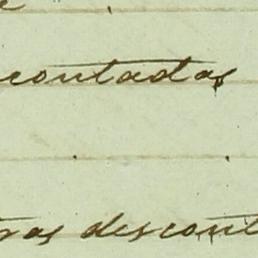 contadas
ras descont